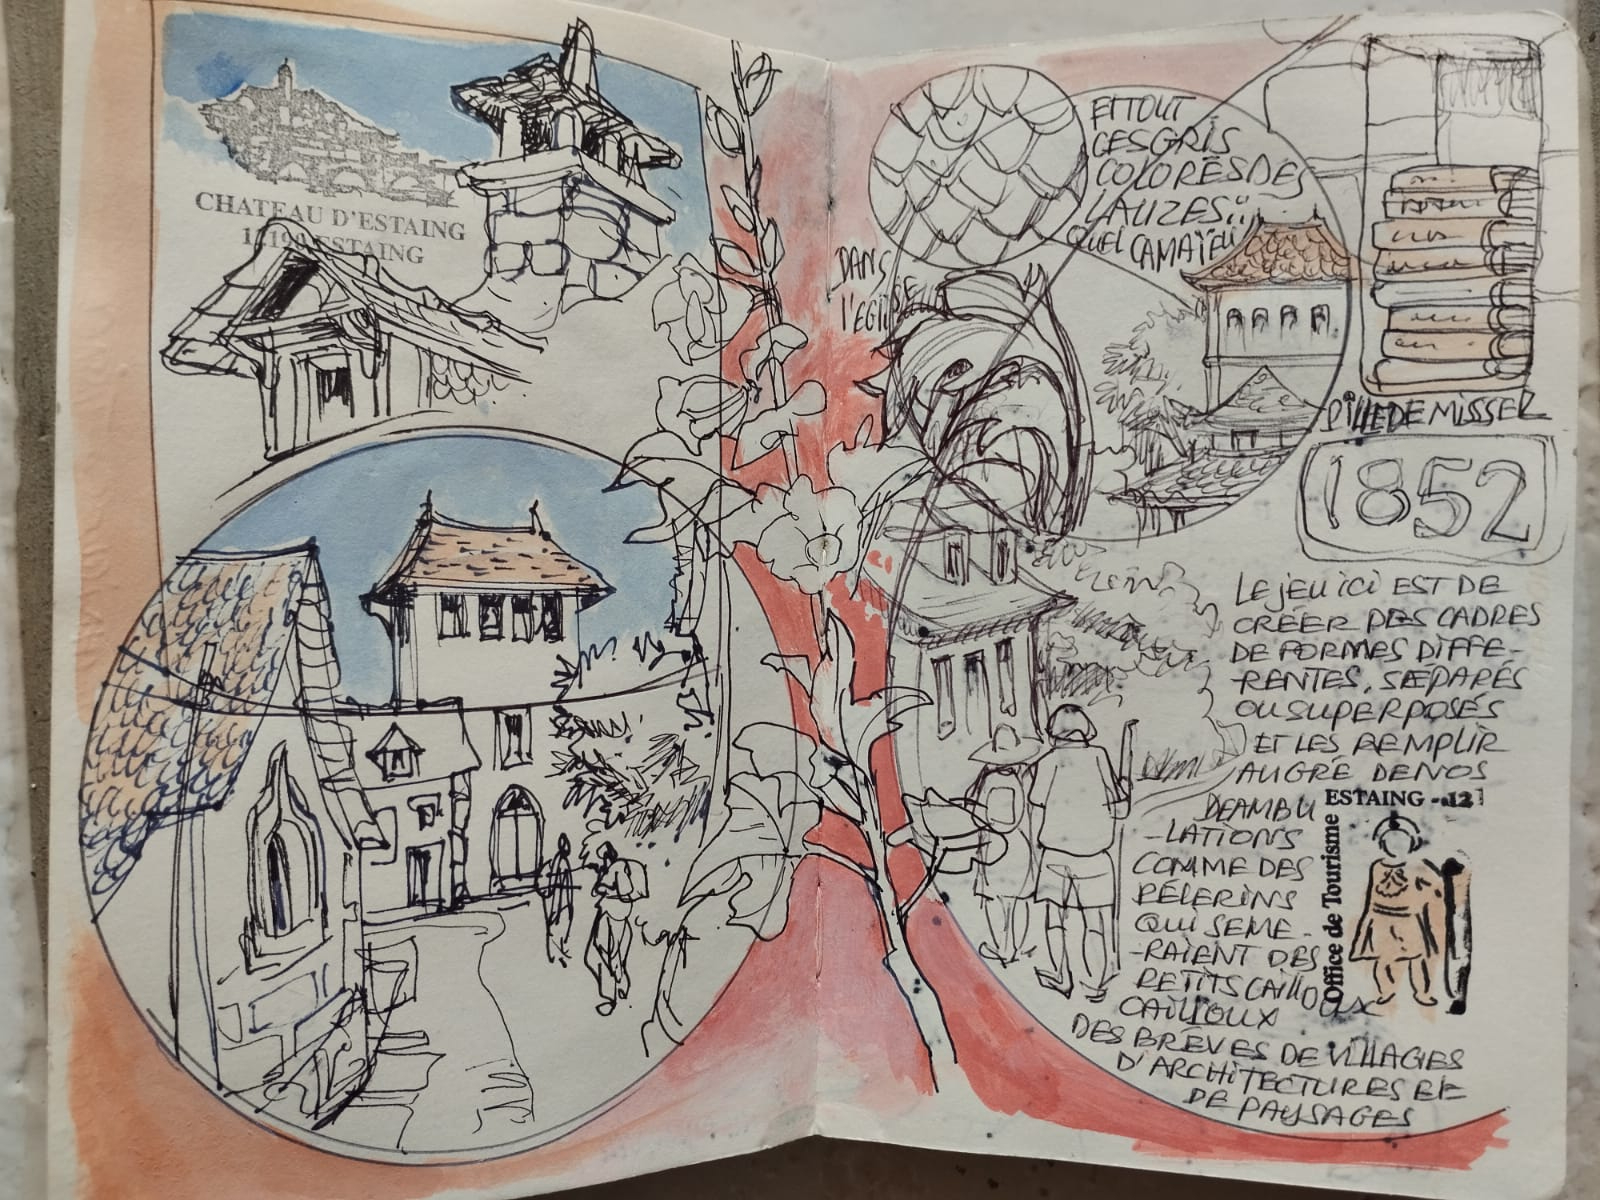 CHATEAU D'ESTAING
12190 ESTAING
ET TOUT
CES GRIS
COLORÉS DES
LAUZES
QUEL CAMAÏEU
DANS
L'EGLISE
PILE DE MISSEL
1852
LE JEU ICI EST DE
CRÉER DES CADRES
DE FORMES DIFFE-
-RENTES, SÆPARÉS
OU SUPERPOSÉS
ET LES REMPLIR
AU GRÉ DE NOS
DEAMBU
-LATIONS
COMME DES
PÉLERINS
QUI SEME-
-RAIENT DES
PETITS CAILLOUX
CAILLOUX
DES BRÈVES DE VILLAGES
D'ARCHITECTURES ET
DE PAYSAGES
ESTAING - 12
Office de Tourisme